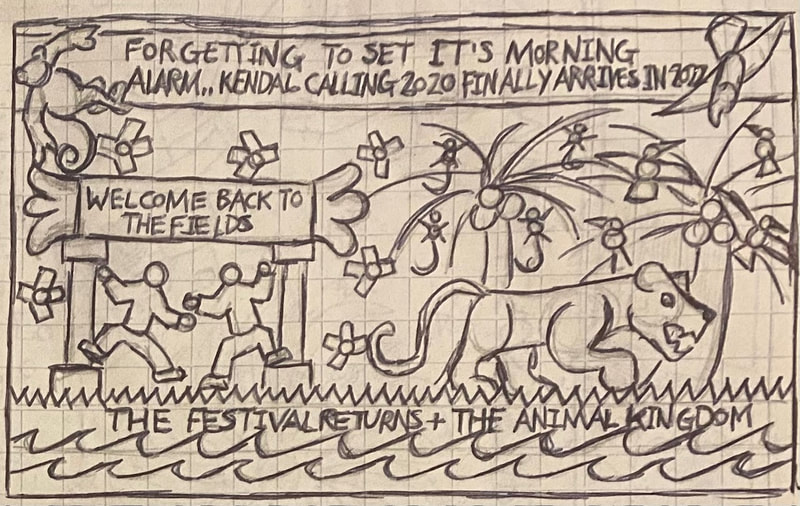 FORGETTING TO SET IT'S MORNING
ALARM.. KENDAL CALLING 2020 FINALLY ARRIVES IN 2022
WELCOME BACK TO
THE FIELDS
THE FESTIVAL RETURNS + THE ANIMAL KINGDOM